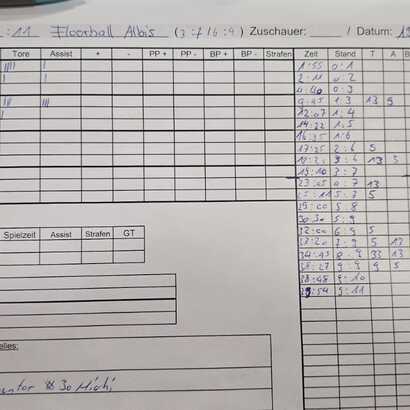 :11 Floorball Albis (3:7/6:4) Zuschauer: Datum: 19
Tore Assist + - PP + PP - BP + BP - Strafen Zeit Stand T A
1:55 0:1
2:11 0:2
4:40 0:3
9:45 1:3 13 9
12:07 1:4
14:22 1:5
16:35 1:6
17:25 2:6 5
18:21 3:6 13 3
19:10 3:7
23:45 4:7 13
25:11 5:7 5
29:00 5:8
30:30 5:9
Spielzeit Assist Strafen GT
32:00 6:9 5
7:9 5 13
34:45 8:9 33 13
38:27 9:9 9 5
38:48 9:10
39:54 9:11
elles:
30 Michi